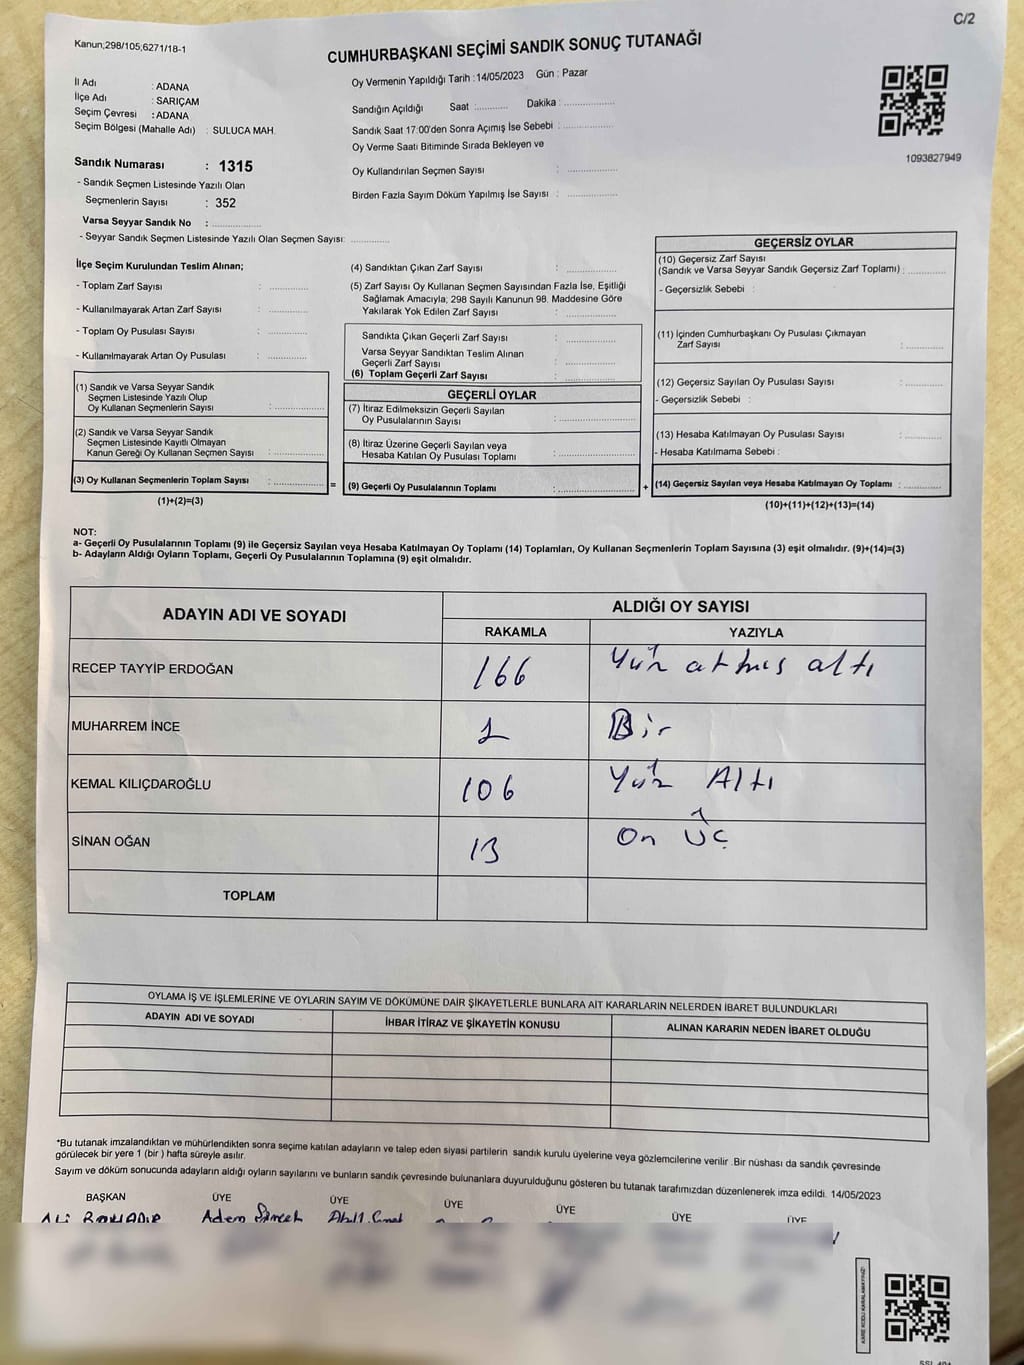 C/2
Kanun;298/105;6271/18-1
CUMHURBAŞKANI SEÇİMİ SANDIK SONUÇ TUTANAĞI
İl Adı : ADANA
İlçe Adı : SARIÇAM
Seçim Çevresi : ADANA
Seçim Bölgesi (Mahalle Adı) : SULUCA MAH.
Sandık Numarası : 1315
- Sandık Seçmen Listesinde Yazılı Olan
Seçmenlerin Sayısı : 352
Varsa Seyyar Sandık No : ..............
- Seyyar Sandık Seçmen Listesinde Yazılı Olan Seçmen Sayısı: ............
Oy Vermenin Yapıldığı Tarih : 14/05/2023 Gün : Pazar
Sandığın Açıldığı Saat :........... Dakika : ................
Sandık Saat 17:00'den Sonra Açımış İse Sebebi : ................
Oy Verme Saati Bitiminde Sırada Bekleyen ve
Oy Kullandırılan Seçmen Sayısı : ................
Birden Fazla Sayım Döküm Yapılmış İse Sayısı : ................
1093827949
İlçe Seçim Kurulundan Teslim Alınan;
- Toplam Zarf Sayısı : ............
- Kullanılmayarak Artan Zarf Sayısı : ............
- Toplam Oy Pusulası Sayısı : ............
- Kullanılmayarak Artan Oy Pusulası : ............
(1) Sandık ve Varsa Seyyar Sandık
Seçmen Listesinde Yazılı Olup
Oy Kullanan Seçmenlerin Sayısı : ................
(2) Sandık ve Varsa Seyyar Sandık
Seçmen Listesinde Kayıtlı Olmayan
Kanun Gereği Oy Kullanan Seçmen Sayısı : ................
(3) Oy Kullanan Seçmenlerin Toplam Sayısı : ................ =
(1)+(2)=(3)
(4) Sandıktan Çıkan Zarf Sayısı : ................
(5) Zarf Sayısı Oy Kullanan Seçmen Sayısından Fazla İse, Eşitliği
Sağlamak Amacıyla; 298 Sayılı Kanunun 98. Maddesine Göre
Yakılarak Yok Edilen Zarf Sayısı : ................
Sandıkta Çıkan Geçerli Zarf Sayısı : ................
Varsa Seyyar Sandıktan Teslim Alınan
Geçerli Zarf Sayısı : ................
(6) Toplam Geçerli Zarf Sayısı : ................
GEÇERLİ OYLAR
(7) İtiraz Edilmeksizin Geçerli Sayılan
Oy Pusulalarının Sayısı : ................
(8) İtiraz Üzerine Geçerli Sayılan veya
Hesaba Katılan Oy Pusulası Toplamı : ................
(9) Geçerli Oy Pusulalarının Toplamı : ................ +
GEÇERSİZ OYLAR
(10) Geçersiz Zarf Sayısı
(Sandık ve Varsa Seyyar Sandık Geçersiz Zarf Toplamı) : ............
- Geçersizlik Sebebi :
(11) İçinden Cumhurbaşkanı Oy Pusulası Çıkmayan
Zarf Sayısı : ............
(12) Geçersiz Sayılan Oy Pusulası Sayısı : ............
- Geçersizlik Sebebi :
(13) Hesaba Katılmayan Oy Pusulası Sayısı : ............
- Hesaba Katılmama Sebebi :
(14) Geçersiz Sayılan veya Hesaba Katılmayan Oy Toplamı : ............
(10)+(11)+(12)+(13)=(14)
NOT:
a- Geçerli Oy Pusulalarının Toplamı (9) ile Geçersiz Sayılan veya Hesaba Katılmayan Oy Toplamı (14) Toplamları, Oy Kullanan Seçmenlerin Toplam Sayısına (3) eşit olmalıdır. (9)+(14)=(3)
b- Adayların Aldığı Oyların Toplamı, Geçerli Oy Pusulalarının Toplamına (9) eşit olmalıdır.
ADAYIN ADI VE SOYADI ALDIĞI OY SAYISI
RAKAMLA YAZIYLA
RECEP TAYYİP ERDOĞAN 166 Yüz atmış altı
MUHARREM İNCE 1 Bir
KEMAL KILIÇDAROĞLU 106 Yüz Altı
SİNAN OĞAN 13 On üç
TOPLAM
OYLAMA İŞ VE İŞLEMLERİNE VE OYLARIN SAYIM VE DÖKÜMÜNE DAİR ŞİKAYETLERLE BUNLARA AİT KARARLARIN NELERDEN İBARET BULUNDUKLARI
ADAYIN ADI VE SOYADI İHBAR İTİRAZ VE ŞİKAYETİN KONUSU ALINAN KARARIN NEDEN İBARET OLDUĞU
*Bu tutanak imzalandıktan ve mühürlendikten sonra seçime katılan adayların ve talep eden siyasi partilerin sandık kurulu üyelerine veya gözlemcilerine verilir .Bir nüshası da sandık çevresinde
görülecek bir yere 1 (bir ) hafta süreyle asılır.
Sayım ve döküm sonucunda adayların aldığı oyların sayılarını ve bunların sandık çevresinde bulunanlara duyurulduğunu gösteren bu tutanak tarafımızdan düzenlenerek imza edildi. 14/05/2023
BAŞKAN ÜYE ÜYE ÜYE ÜYE ÜYE ÜYE
ALİ
KARE KODU KARALAMAYINIZ!